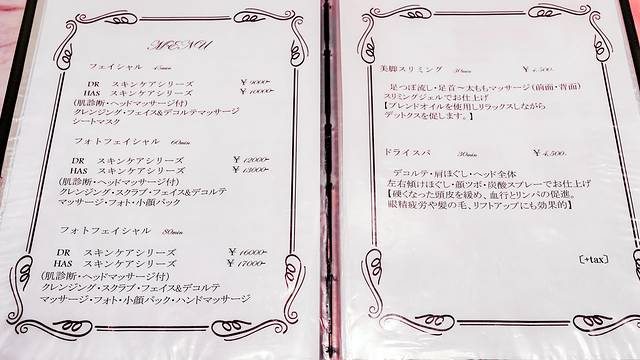 MENU
フェイシャル 45min
DR スキンケアシリーズ ¥ 9000-
HAS スキンケアシリーズ ¥ 10000-
(肌診断・ヘッドマッサージ付)
クレンジング・フェイス&デコルテマッサージ
シートマスク
フォトフェイシャル 60min
DR スキンケアシリーズ ¥ 12000-
HAS スキンケアシリーズ ¥ 13000-
(肌診断・ヘッドマッサージ付)
クレンジング・スクラブ・フェイス&デコルテ
マッサージ・フォト・小顔パック
フォトフェイシャル 80min
DR スキンケアシリーズ ¥ 16000-
HAS スキンケアシリーズ ¥ 17000-
(肌診断・ヘッドマッサージ付)
クレンジング・スクラブ・フェイス&デコルテ
マッサージ・フォト・小顔パック・ハンドマッサージ
美脚スリミング 30min ¥ 4,500.
足つぼ流し・足首~太ももマッサージ(前面・背面)
スリミングジェルでお仕上げ
【ブレンドオイルを使用しリラックスしながら
デットクスを促します。】
ドライスパ 30min ¥ 4,500.
デコルテ・肩ほぐし・ヘッド全体
左右傾けほぐし・顔ツボ・炭酸スプレーでお仕上げ
【硬くなった頭皮を緩め、血行とリンパの促進。
眼精疲労や髪の毛、リフトアップにも効果的】
[+tax]